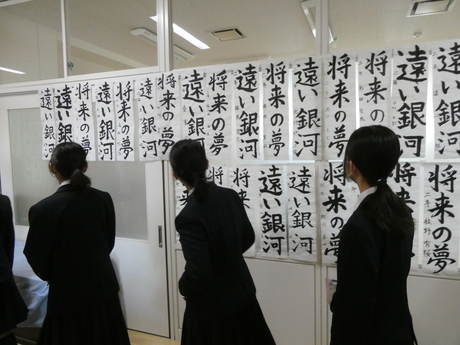 将来の夢
遠い銀河
将来の夢
将来の夢
遠い銀河
将来の夢
遠い銀河
遠い銀河
将来の夢
将来の夢
遠い銀河
将来の夢
遠い銀河
将来の夢
遠い銀河
遠い銀河
将来の夢
将来の夢
遠い銀河
遠い銀河
将来